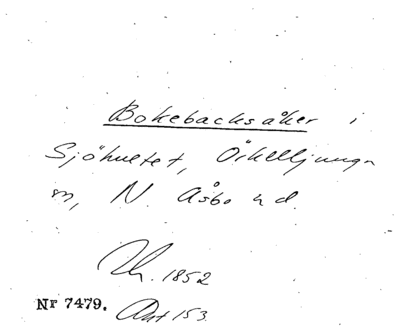 Bokebacksåker i
Sjöhultet, Örkelljunga
sn, N. Åsbo hd.
1852
Nr 7479. Akt 153.